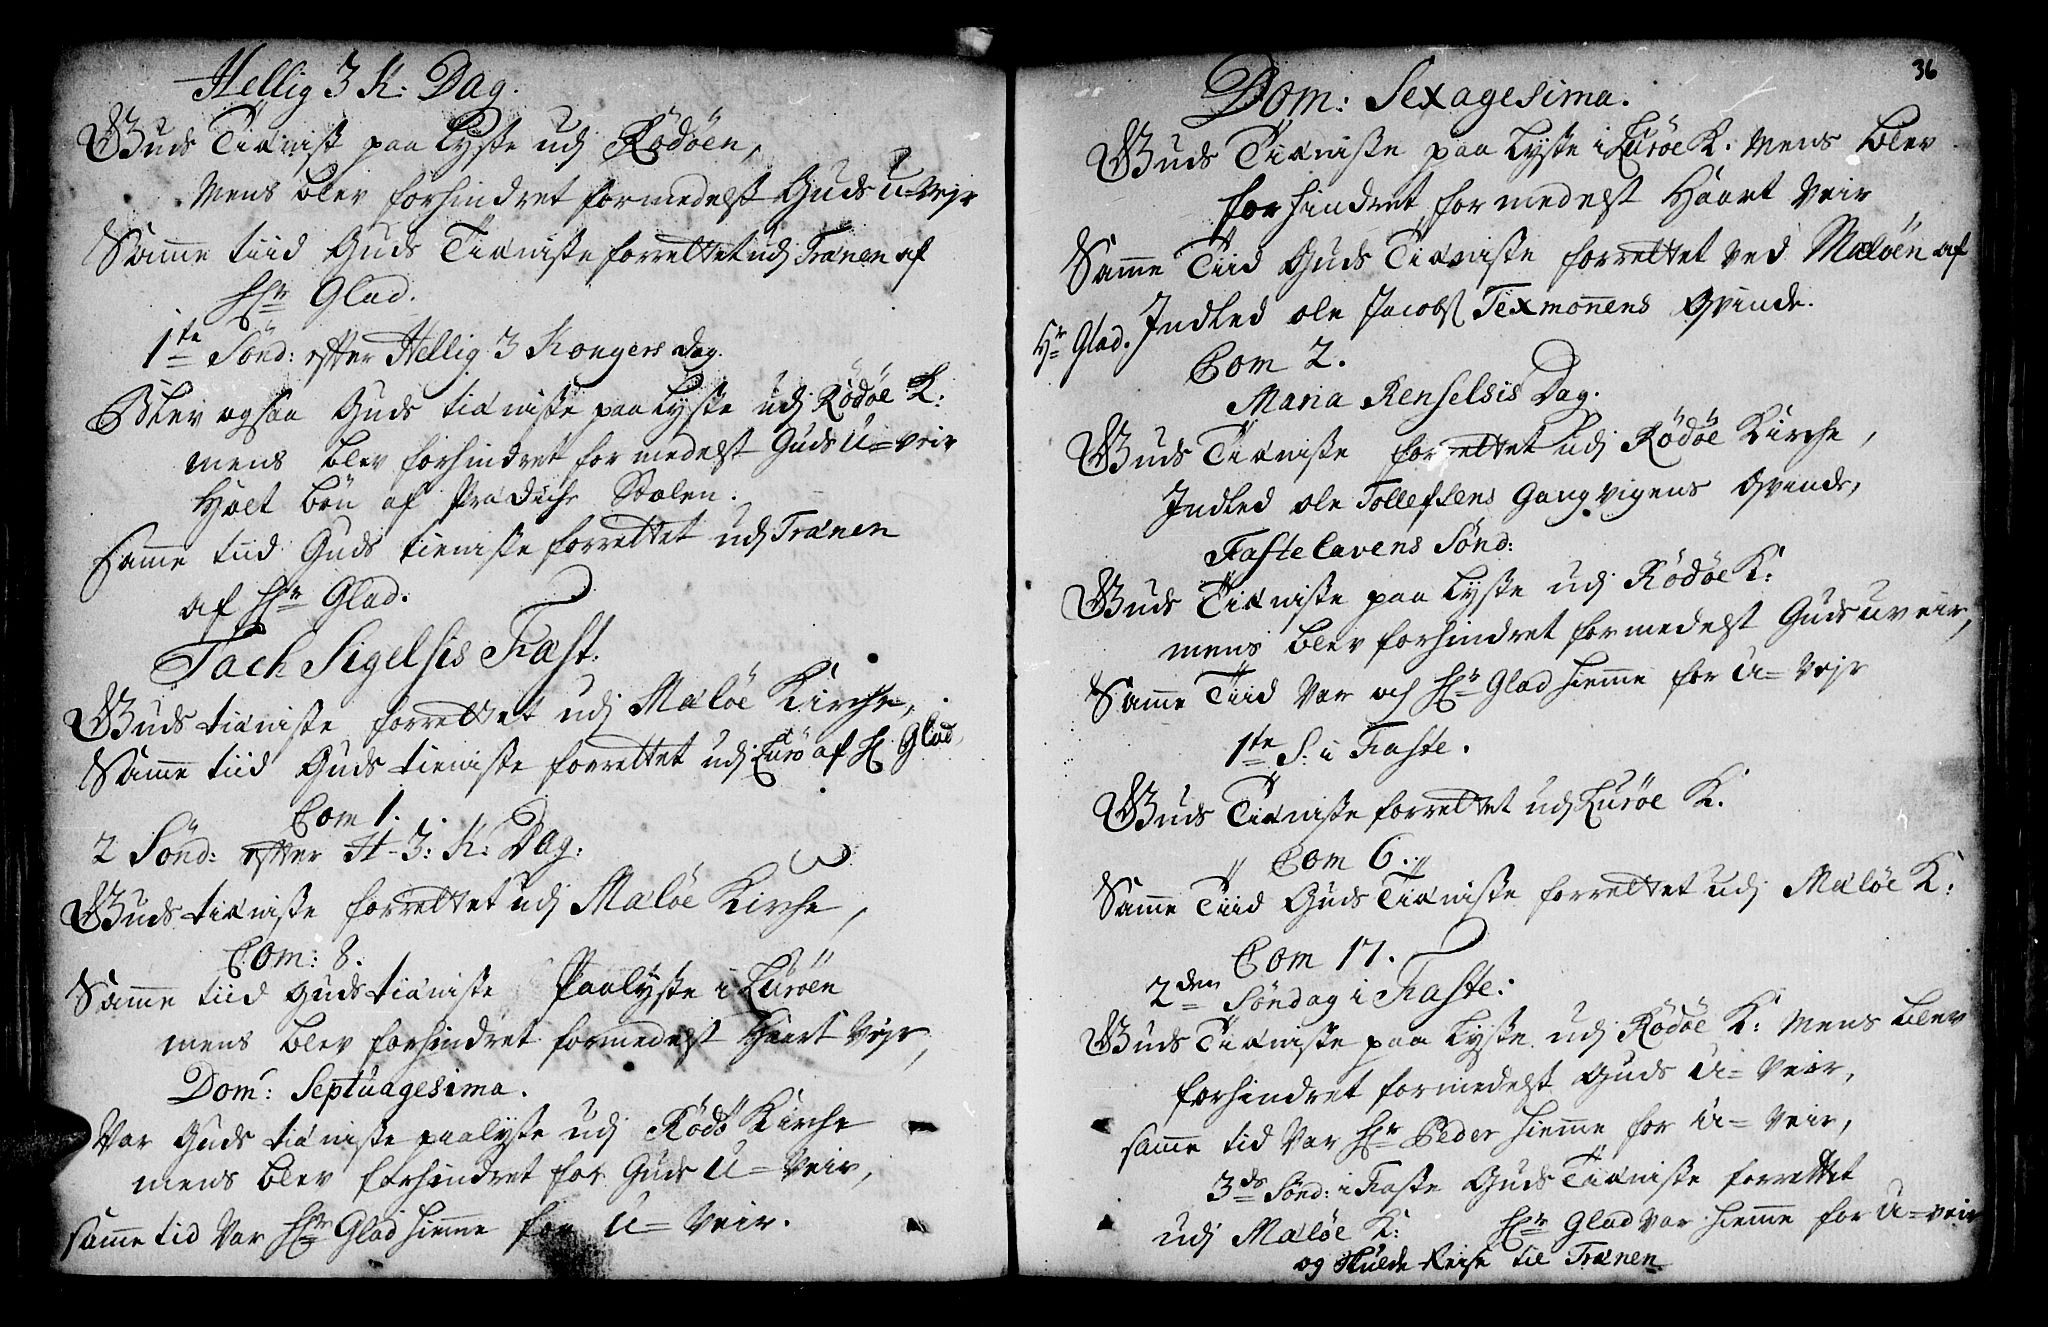 Hellig 3 K: Dag.
Guds Tiænist paa lyste udj Rödöen,
Mens blev forhindret formedelst Guds U=Vejr
Same tiid Guds Tiæniste forrettet udj Trænen af
Hr Glad.
1te Sönd: efter Hellig 3 Kongers Dag.
Blev ogsaa Guds tiæniste paa lyste udj Rödöe K:
mens blev forhindret formedelst Guds U=veir
Holt bön af Prædiche Stolen.
Same tiid Guds tieniste forrettet udj Trænen
af Hr Glad.
Tach Sigelsis Fæst:
Guds tiæniste forrettet udj Mælöe Kirche,
Same tiid Guds tieniste forrettet udj Lurö af H Glad,
Com 1.
2 Sönd: efter H-3: K: Dag:
Guds tiæniste forrettet udj Mælöe Kirche,
Com: 8.
Same tiid Guds tiæniste Paalyste i Luröen
mens blev forhindret formedelst Haart Vejr,
Dom: Septuagesima.
Var Guds tiæniste paalyste udj Rödö Kirche
mens blev forhindret for Guds U=Veir,
same tid Var Hr Glad hieme for U=Veir.
36
Dom: Sexagesima.
Guds Tiæniste paa lyste i Luröe K. Mens blev
forhindret formedelst Haart Veir
Same Tiid Guds Tiæniste forrettet ved Mælöen af
Hr Glad. Indled ole Jacobs Texmonens Qvinde.
Com 2.
Maria Renselsis Dag.
Guds Tiæniste forrettet udj Rödöe Kirche,
Indled ole Tollefsens Gangvigens Qvinde,
Fastelavens Sønd:
Guds Tiæniste paa lyste udj Rödöe K:
mens blev forhindret formedelst Guds uveir,
Same Tiid Var och Hr Glad hieme for U=Vejr
1te S: i Faste.
Guds Tiæniste forrettet udj Luröe K.
Com 6.
Same Tiid Guds Tiæniste forrettet udj Mælöe K:
Com 17.
2den Søndag i Faste:
Guds Tiæniste paa lyste udj Rödöe K: Mens blev
forhindret formedelst Guds U=Veir,
same tid Var Hr Peder hieme for U=Veir,
3de Sønd: i Faste Guds Tiæniste forrettet
udj Mælöe K: Hr Glad Var hieme for U=veir
og skulde Reise til Trænen